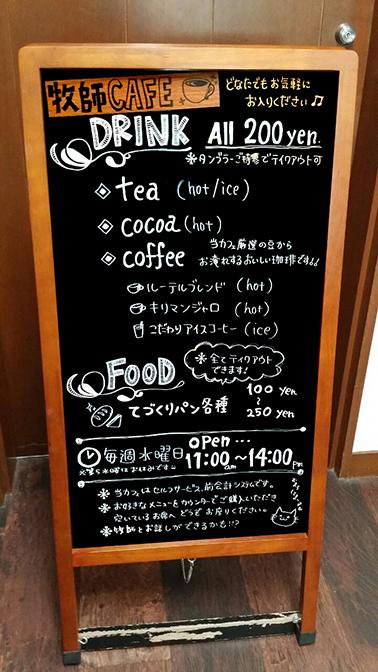 牧師CAFE
どなたでもお気軽に
お入りください♫
DRINK All 200 yen.
※タンブラーご持参でテイクアウト可
◈ tea (hot/ice)
◈ cocoa (hot)
◈ coffee
当カフェ厳選の豆から
お淹れするおいしい珈琲です♩♩
ルーテルブレンド (hot)
キリマンジャロ (hot)
こだわりアイスコーヒー (ice)
FOOD
※全てテイクアウト
できます!
てづくりパン各種
100 yen
~
250 yen
open...
毎週水曜日 11:00am~14:00pm
※第5水曜はお休みです
※当カフェはセルフサービス、前会計システムです。
※お好きなメニューをカウンターでご購入いただき
空いているお席へどうぞお座りください。
※牧師とお話しができるかも!!?